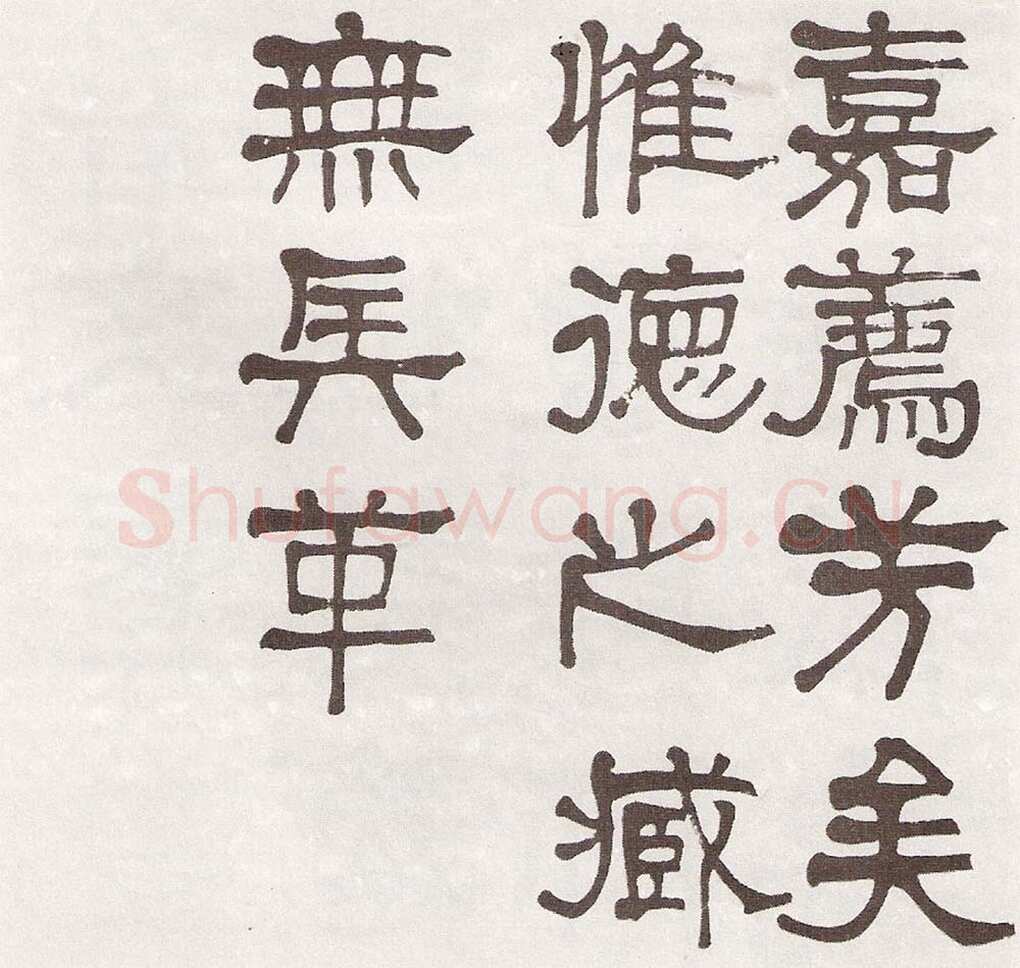 嘉薦芳矣
惟德之臧
無兵革
Shufawang.CN